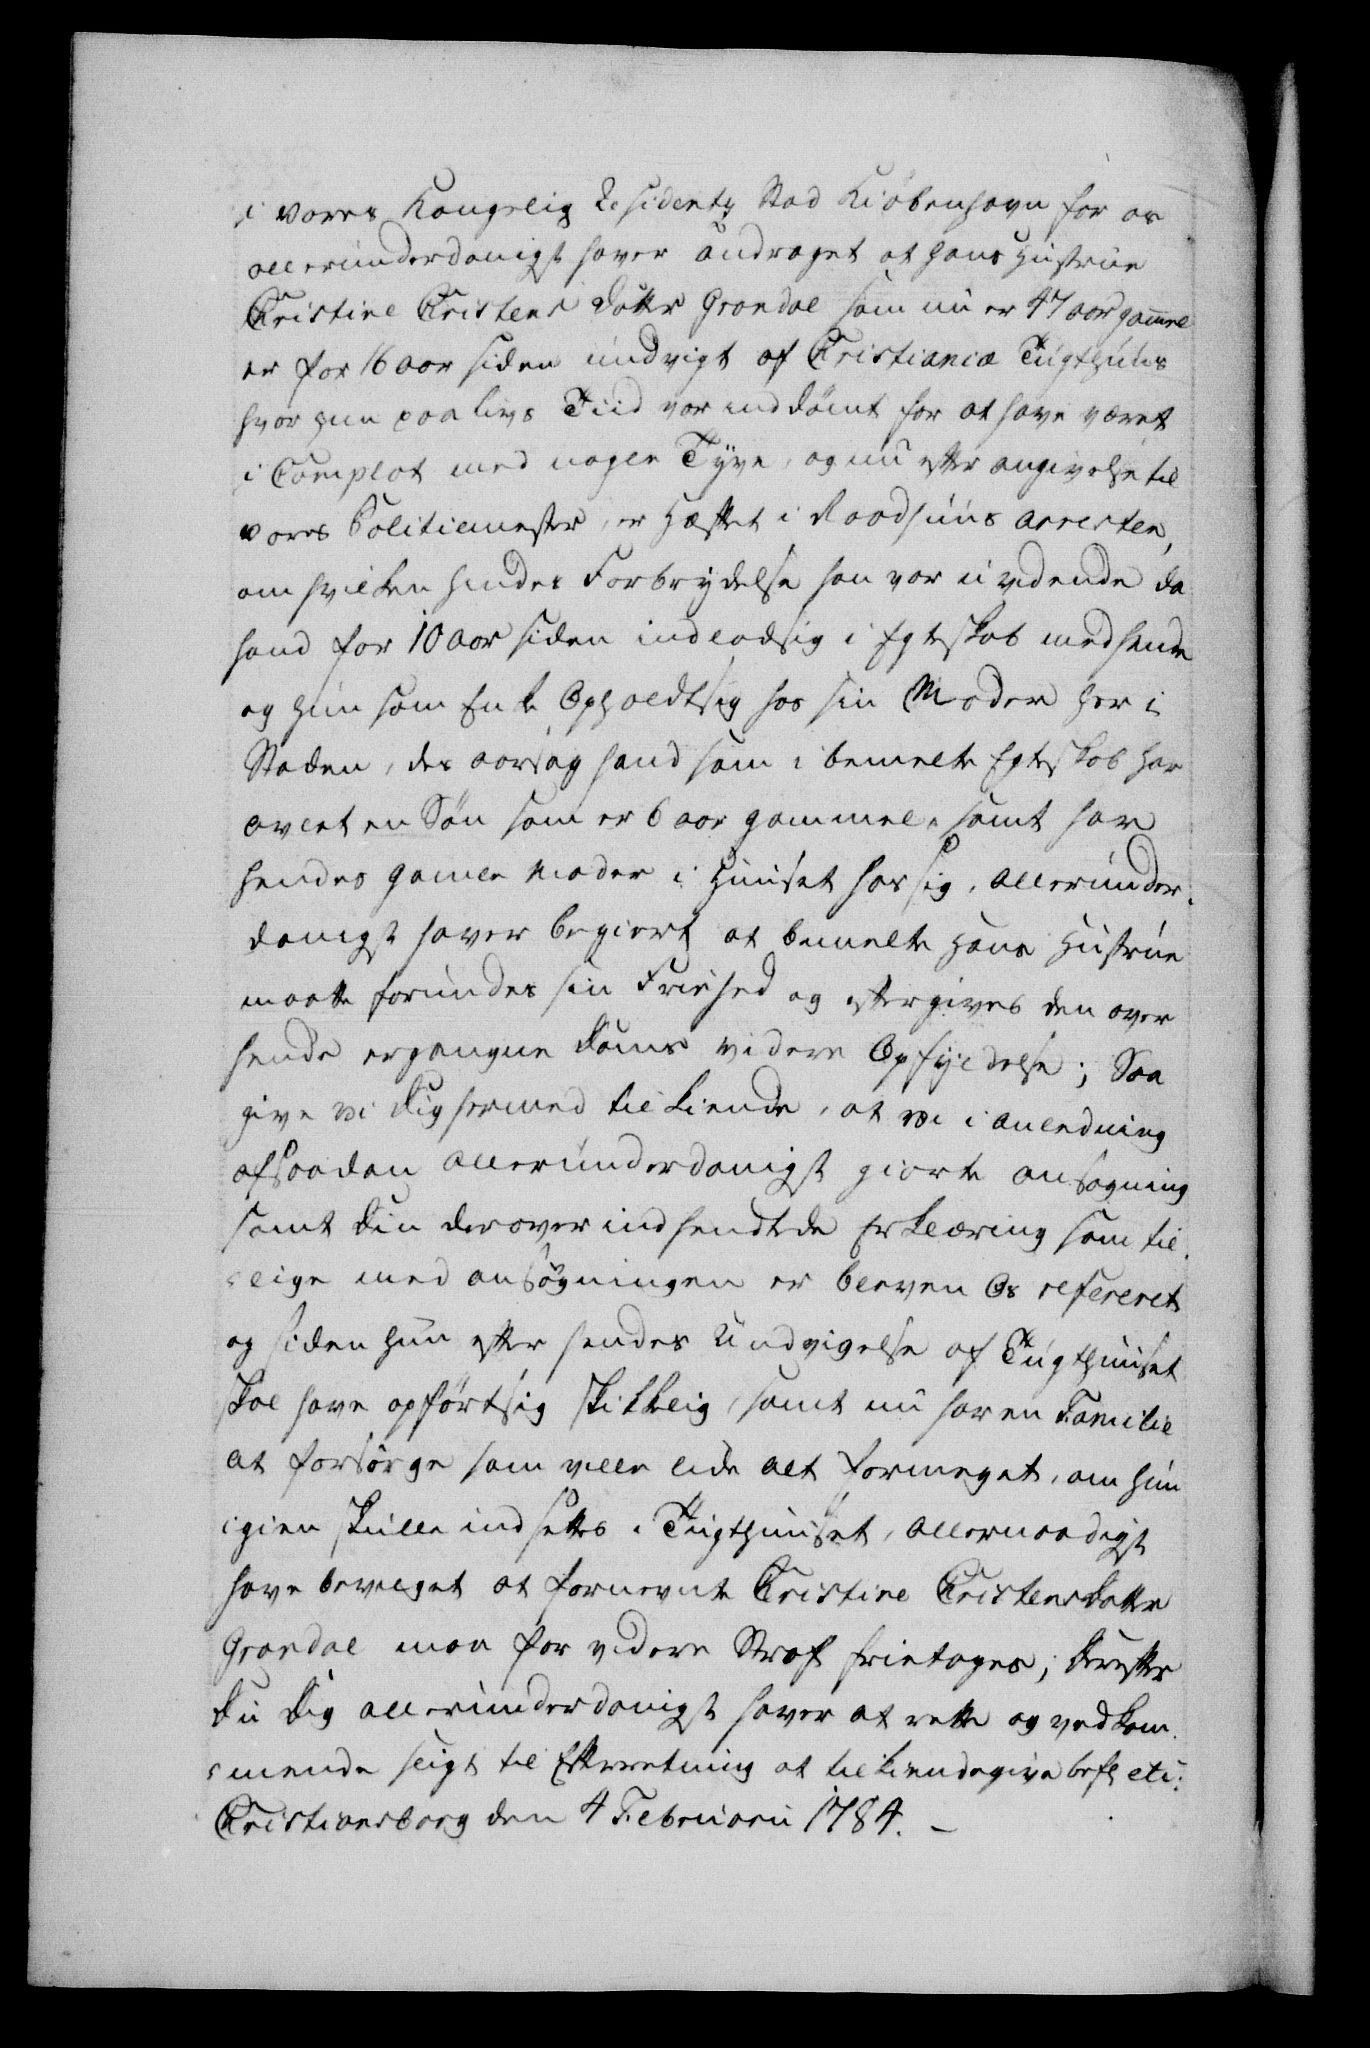 i vores Kongelig Residentz Stad Kiöbenhavn for os
allerunderdanigst haver andraget at hans Hustrue
Christine Christens Datter Grondal som nu er 47 aar gammel
er for 16 aar siden undvigt af Christiania Tugthuus
hvor hun paa livs Tiid var inddömt for at have været
i Complot med nogle Tyve, og nu efter angivelse til
vores Politiemester, er Hæftet i Raadhuus arresten,
om hvilken hendes Forbrydelse han var uvidende da
hand for 10 aar siden indlod sig i Egteskab med hende
og hun som Enke Opholdt sig hos sin Moder her i
Staden, des aarsag hand som i bemelte Egteskab har
avlet en Sön som er 6 aar gammel, samt har
hendes gamle Moder i Huuset hos sig, allerunder-
danigst haver begiert at bemelte Hans Hustrue
maatte forundes sin Friehed og eftergives den over
hende ergangne Doms videre Opfyldelse; Saa
give vi Dig hermed tilkiende, at vi i anledning
af saadan allerunderdanigst giorte ansøgning
samt Din derover indsendte Erklæring som til-
lige med ansøgningen er bleven Os refereret
og siden hun efter hendes Undvigelse af Tugthuuset
skal have opført sig skikkelig, samt nu har en Familie
at forsörge som ville lide alt formeget, om hun
igien skulle indsettes i Tugthuuset, allernaadigst
have bevilget at fornevnte Christine Christensdatter
Grondal maa for videre Straf frietages; Derefter
Du Dig allerunderdanigst haver at rette og vedkom-
mende sligt til Efterretning at tilkiendegive befl etc:
Christiansborg den 4 Februarii 1784. –